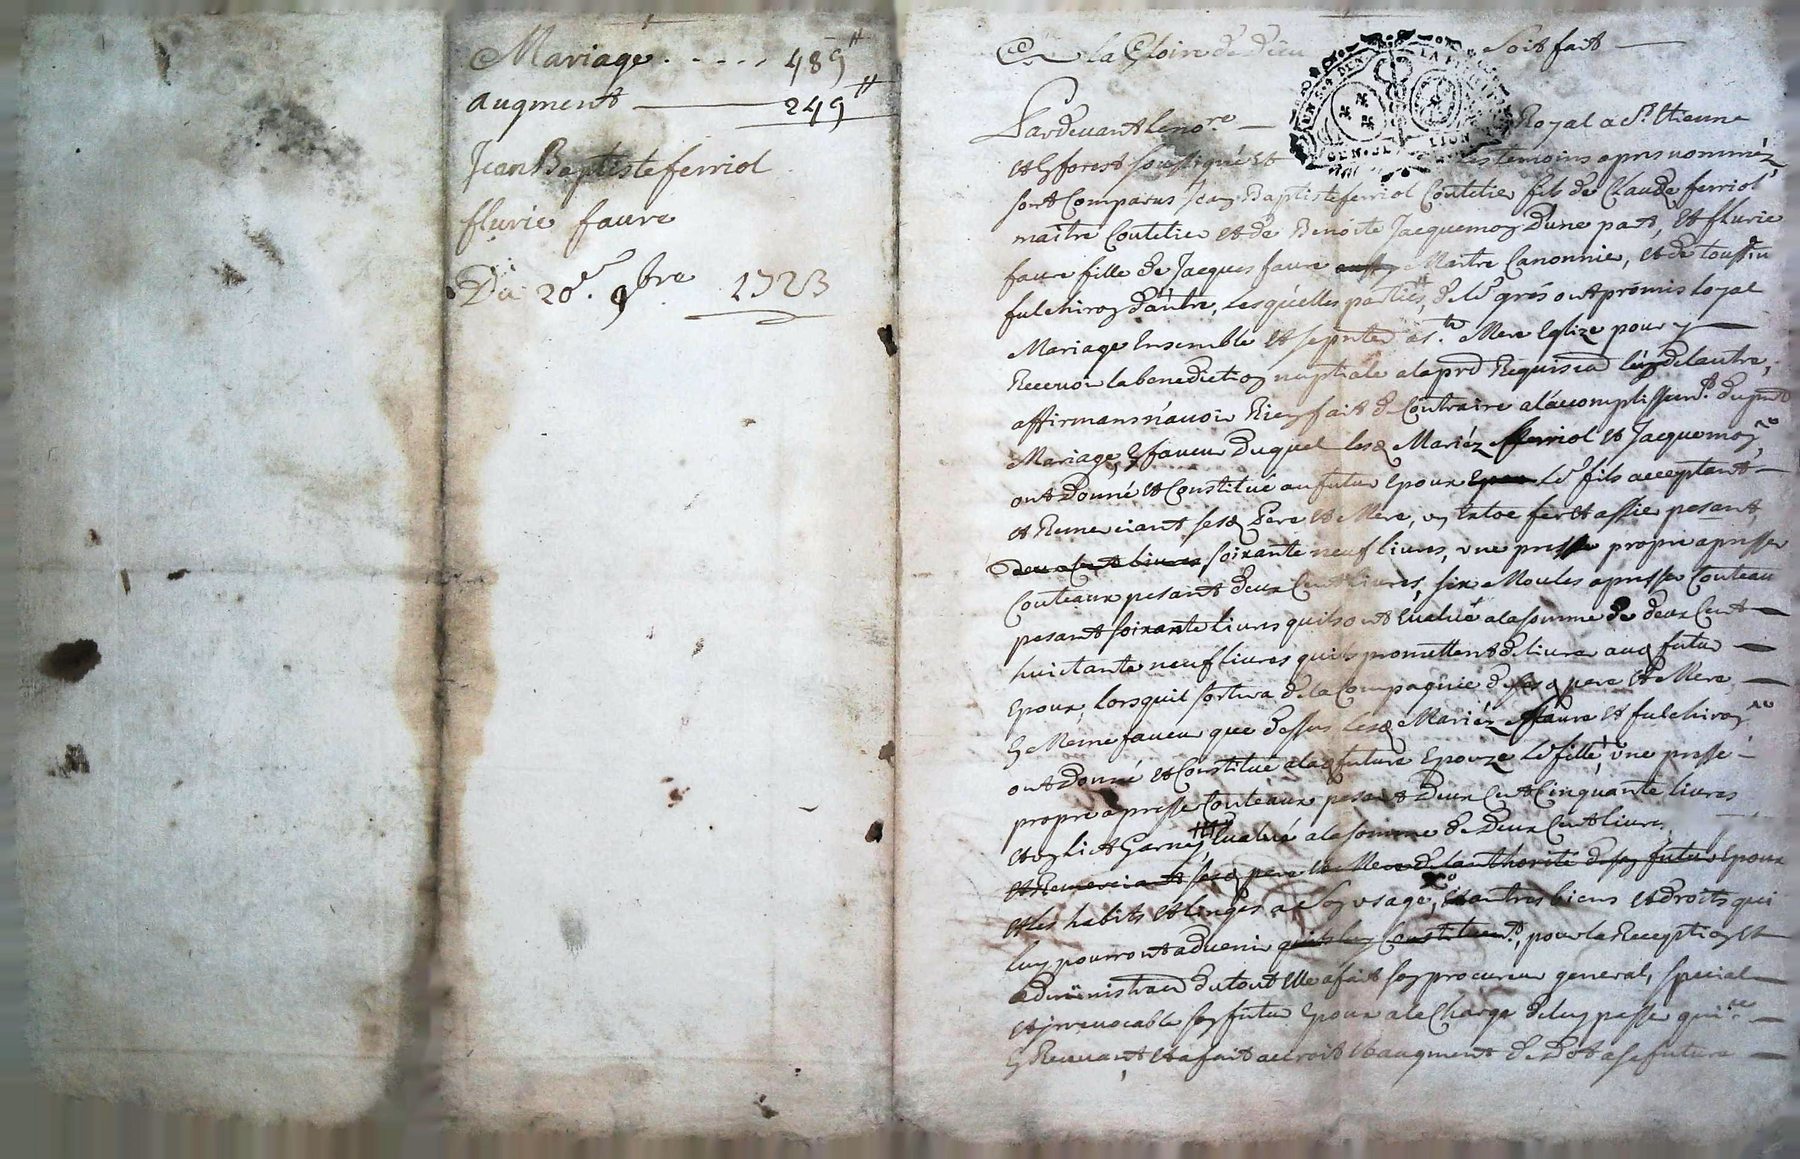 Mariage . . . . . 489tt
augment 249tt
Jean Baptiste ferriol
flurie faure
Du 20e. 9bre 1723
A la Gloire de Dieu Soit fait
Pardevant le nore. Royal a St. Etienne
et forest soussigné et les temoins apres nommèz
sont Comparus Jean Baptiste ferriol Coutelier fils de Claude ferriol
maitre Coutelier et de Benoite Jacquemoz Dune part, et flurie
faure fille de Jacques faure Maitre Canonnier, et de
fulchiroz Dautre, Lesquelles parties, de Lr. grés ont promis Loyal
Mariage Ensemble et se pnter a Ste. Mere Eglize pour y
Recevoir la benediction nuptiale a la pre Requison Luy de lautre,
affirmans n'avoir Rien fait de Contraire a l'accomplissemt. du pnt
Mariage, En faveur Duquel Lesd Mariéz ferriol et Jacquemoz
ont Donné et Constitué au futur Epoux Lr. fils acceptant
et Remerciant sesd Pere et Mere, un Etoc fer et assie pesant
deux Cent Livres soixante neuf livres, une presse propre a presser
Couteaux pesant deux Cent livres, six Moules a presser Couteau
pesant soixante Livres quils ont Evalué a la somme de deux Cent
huictante neuf livres quils promettent de livrer aud futur
Epoux, Lorsquil sortira de la Compagnie de sesd pere et Mere
En Meme faveur que Dessus Lesd Mariéz faure et fulchiroz
ont Donné et Constitué a lad future Epouze Lr. fille, une presse
propre a presser Couteaux pesant Deux Cent Cinquante livres
et un Lict Garny, Evalué a la somme de Deux Cent livres
et Remerciant sesd pere et Mere de lauthorité de son futur Epoux
et les habits et linges a Son usage, et autres biens et droits qui
luy pourront advenir quils luy Constituent, pour la Reception et
administraon du tout Elle a fait son procureur general, special
et irrevocable son futur Epoux a la Charge de luy passer quitce
En Recevant, et a fait accroit et augment de Dot a sa future